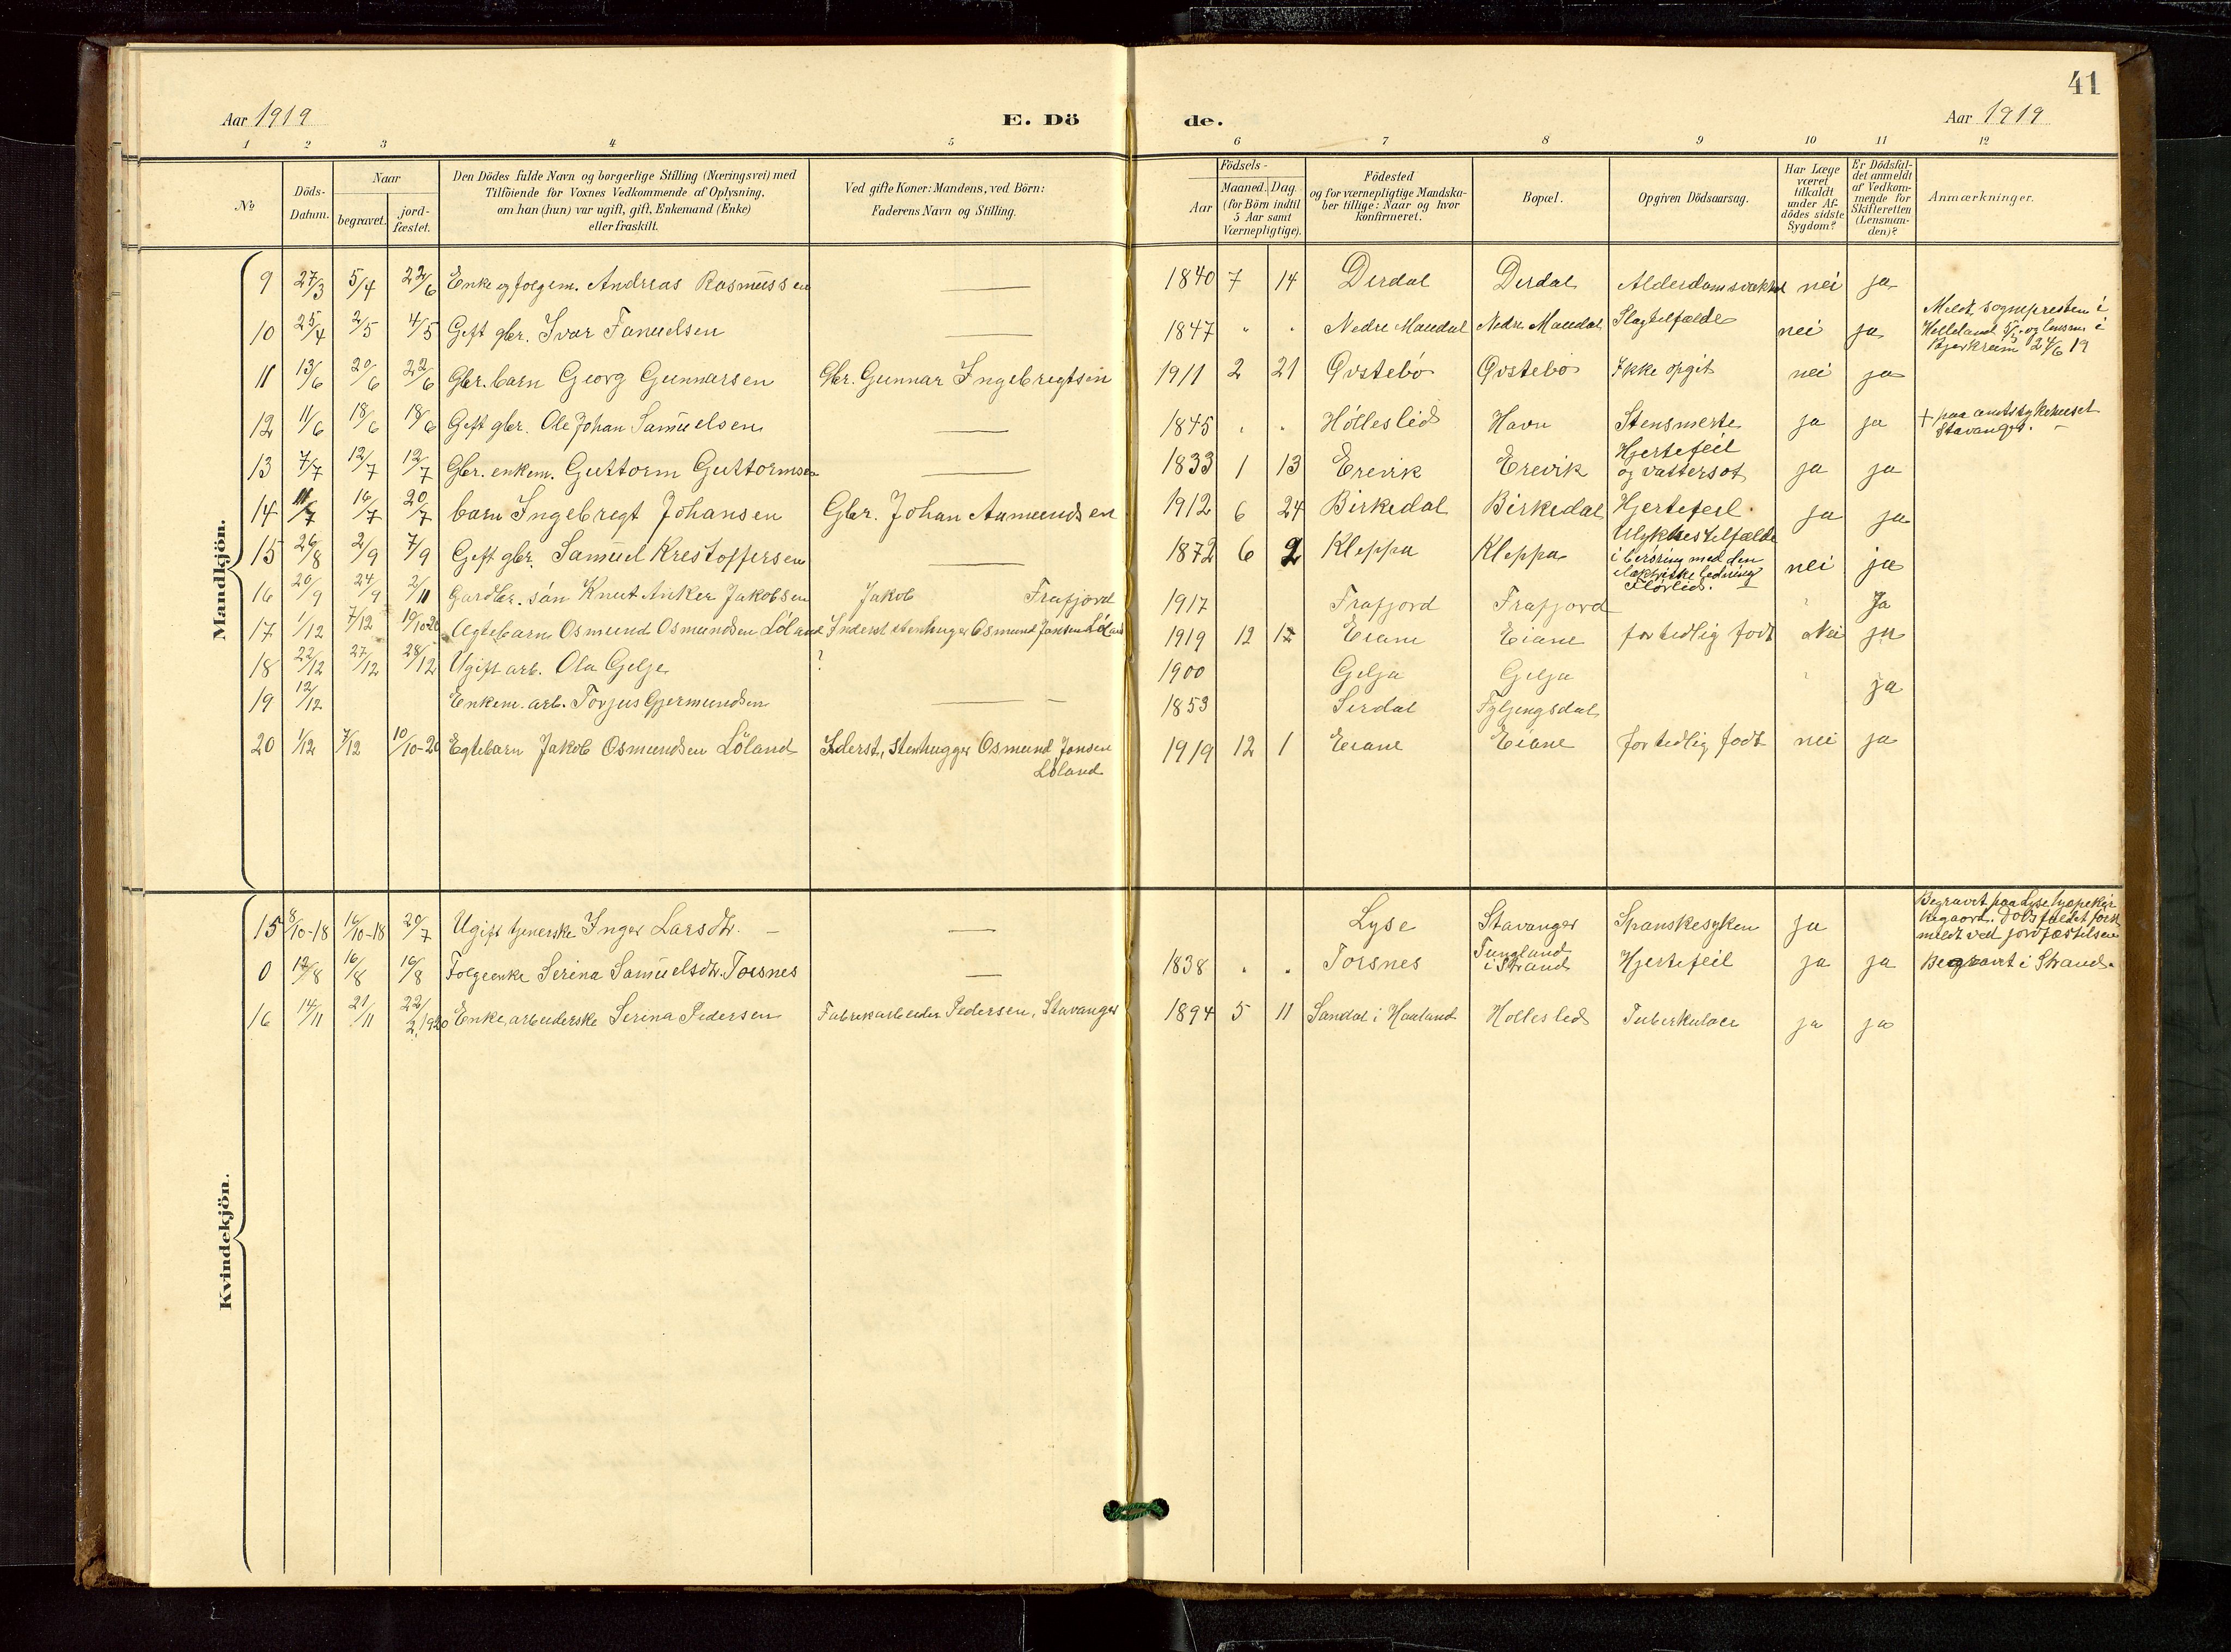 41
Aar 1919 E. Dö de. Aar 1919
1 2 3 4 5 6 7 8 9 10 11 12
No
Döds-Datum.
Naar
begravet. jord-fæstet.
Den Dödes fulde Navn og borgerlige Stilling (Næringsvei) med
Tilföiende for Voxnes Vedkommende af Oplysning,
om han (hun) var ugift, gift, Enkemand (Enke)
eller fraskilt.
Ved gifte Koner: Mandens, ved Börn:
Faderens Navn og Stilling.
Födsels-
Aar
Maaned. Dag
(for Börn indtil
5 Aar samt
Værnepligtige).
Födested
og for værnepligtige Mandska-
ber tillige: Naar og hvor
konfirmeret.
Bopæl.
Opgiven Dödsaarsag.
Har Læge
været
tilkaldt
under Af-
dödes sidste
Sygdom?
Er Dödsfal-
det anmeldt
af Vedkom-
mende for
Skifteretten
(Lensman-
den)?
Anmærkninger.
Mandkjön.
9 27/3 5/4 22/6 Enke og folgem. Andreas Rasmussen — 1840 7 14 Dirdal Dirdal Alderdomsvakhet nei ja
10 25/4 2/5 4/5 Gift gbr. Ivar Fanuelsen — 1847 " " Nedre Maudal Nedre Maudal Slagtilfælde nei ja Meldt sognepresten i
Helleland og lensm. i
Bjerkreim 24/6 19
11 13/6 20/6 22/6 Gbr. barn Georg Gunnarsen Gbr. Gunnar Ingebregtsen 1911 2 21 Øvstebö Øvstebö Ikke opgit nei ja
12 11/6 18/6 18/6 Gift gbr. Ole Johan Samuelsen — 1845 " " Hölleslid Havn Stensmerte ja ja + paa amtssykehuset
Stavanger. —
13 7/7 12/7 12/7 Gbr. enkem. Guttorm Guttormsen — 1833 1 13 Erevik Erevik Hjertefeil
og vattersot ja ja
14 11/7 16/7 20/7 barn Ingebregt Johansen Gbr. Johan Aamundsen 1912 6 24 Birkedal Birkedal Hjertefeil. ja ja
15 26/8 2/9 7/9 Gift gbr. Samuel Kristoffersen — 1872 6 2 Kleppa Kleppa Ulykkestilfælde
i beröring med den
elektriske ledning
Flörlid. nei ja
16 20/9 24/9 2/11 Gardbr. sön Knut Anker Jakobsen Jakob Frafjord 1917 Frafjord Frafjord ? Ja
17 1/12 7/12 10/10-20 Ægtebarn Osmund Osmundsen Löland Inderst stenhugger Osmund Jonsen Löland 1919 12 1 Eiane Eiane for tidlig födt Nei ja
18 22/12 27/12 28/12 Ugift arb. Ola Gilje ? 1900 Gilja Gilja ?
19 12/12 Enkem. arb. Torjus Gjermundsen — 1853 Sirdal Fyljengsdal ja
20 1/12 7/12 10/10-20 Egtebarn Jakob Osmundsen Löland Inderst, Stenhugger Osmund Jonsen
Löland 1919 12 1 Eiane Eiane for tidlig födt nei ja
Kvindekjön.
15 8/10-18 16/10-18 20/7 Ugift tjenerske Inger Larsdtr. — — Lyse Stavanger Spanskesyken ja Begravet paa Lyse kir
kegaard. Dödsfaldet först
meldt ved jordfæstelsen
0 12/8 16/8 16/8 Folgeenke Serina Samuelsdtr. Torsnes — 1838 " " Torsnes Tungland
i Strand Hjertefeil ja ja Begravet i Strand.
16 14/11 21/11 22/2 1920 Enke, arbeiderske Serina Pedersen Fabrikarbeider Pedersen, Stavanger 1894 5 11 Sandal i Haaland Hölleslid Tuberkulose ja ja